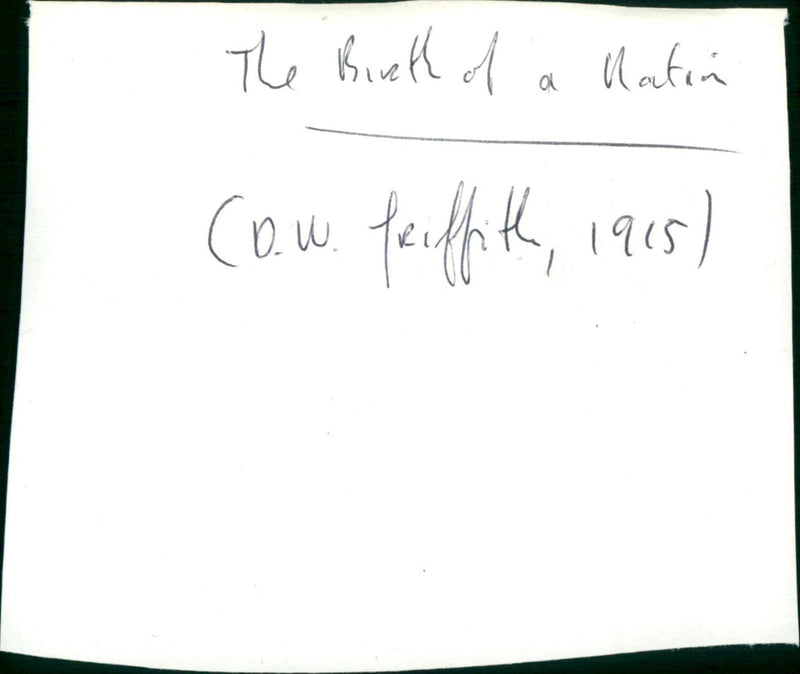 The Birth of a Nation
(D.W. Griffith, 1915)